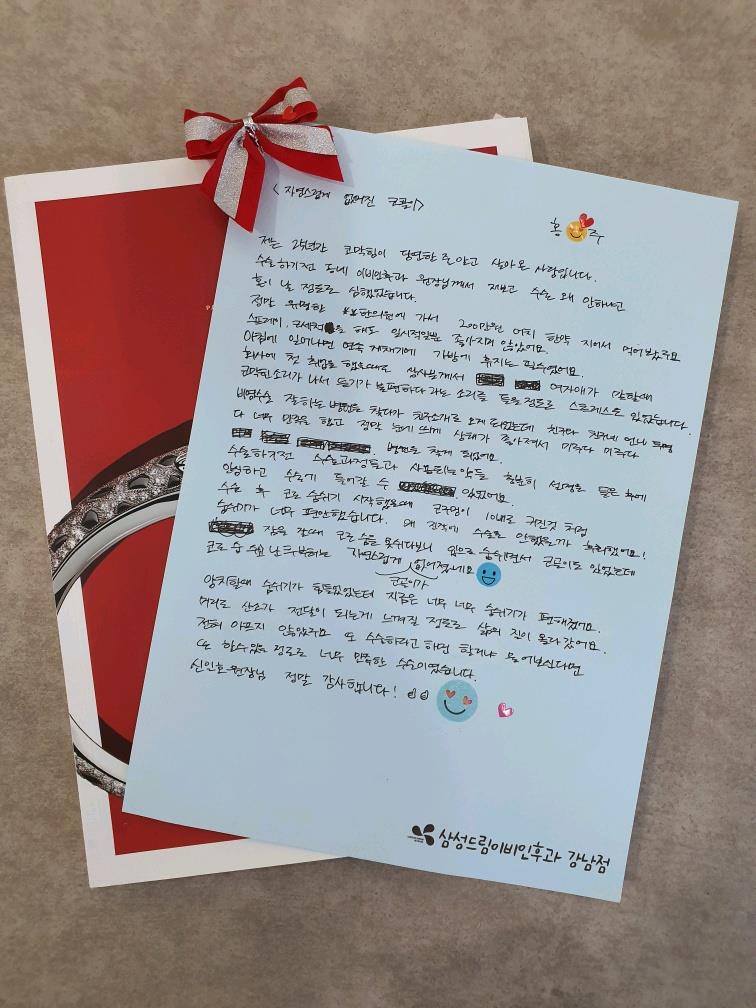 <자연스럽게 없어진 코골이>
홍 주
저는 24년간 코막힘이 당연한 줄 알고 살아온 사람입니다.
수술하기전 동네 이비인후과 원장님께서 저보고 수술 왜 안하냐고
혼이 날 정도로 심했었습니다.
정말 유명한 **한의원에 가서 200만원 어치 한약 지어서 먹어봤구요
스프레이, 코세척으로 해도 일시적일뿐 좋아지지 않았어요.
아침에 일어나면 연속 재채기에 가방에 휴지는 필수였어요.
회사에 첫 취업을 했을때도 상사분께서 여자애가 말할때
코막힌소리가 나서 듣기가 불편하다 라는 소리를 들을정도로 스트레스도 있었습니다.
비염수술 잘하는병원을 찾다가 친구소개로 오게 되었는데 친구와 친구네 언니
다 너무 만족을 했고 정말 눈에 띄게 상태가 좋아져서 미루다 미루다
병원을 찾게 되었어요.
수술하기전 수술과정들과 사용되는약들 충분히 설명을 들은 후에
안심하고 수술에 들어갈 수 있었어요.
수술 후 코로 숨쉬기 시작했을때 콧구멍이 10배로 커진것 처럼
숨쉬기가 너무 편안했습니다. 왜 진작에 수술을 안했을까 후회했어요!
잠을 잘때 코로 숨을 못쉬다보니 입으로 숨쉬면서 코골이도 있었는데
코로 숨 쉬고 난 후부터는 자연스럽게 코골이가 없어졌네요
양치할때 숨쉬기가 힘들었었는데 지금은 너무 너무 숨쉬기가 편해졌어요.
머리로 산소가 전달이 되는게 느껴질 정도로 삶의 질이 올라갔어요.
전혀 아프지 않았구요 또 수술하라고 하면 할거냐 물어보신다면
또 할수있을 정도로 너무 만족한 수술이였습니다.
신인호원장님 정말 감사합니다!
삼성드림이비인후과 강남점